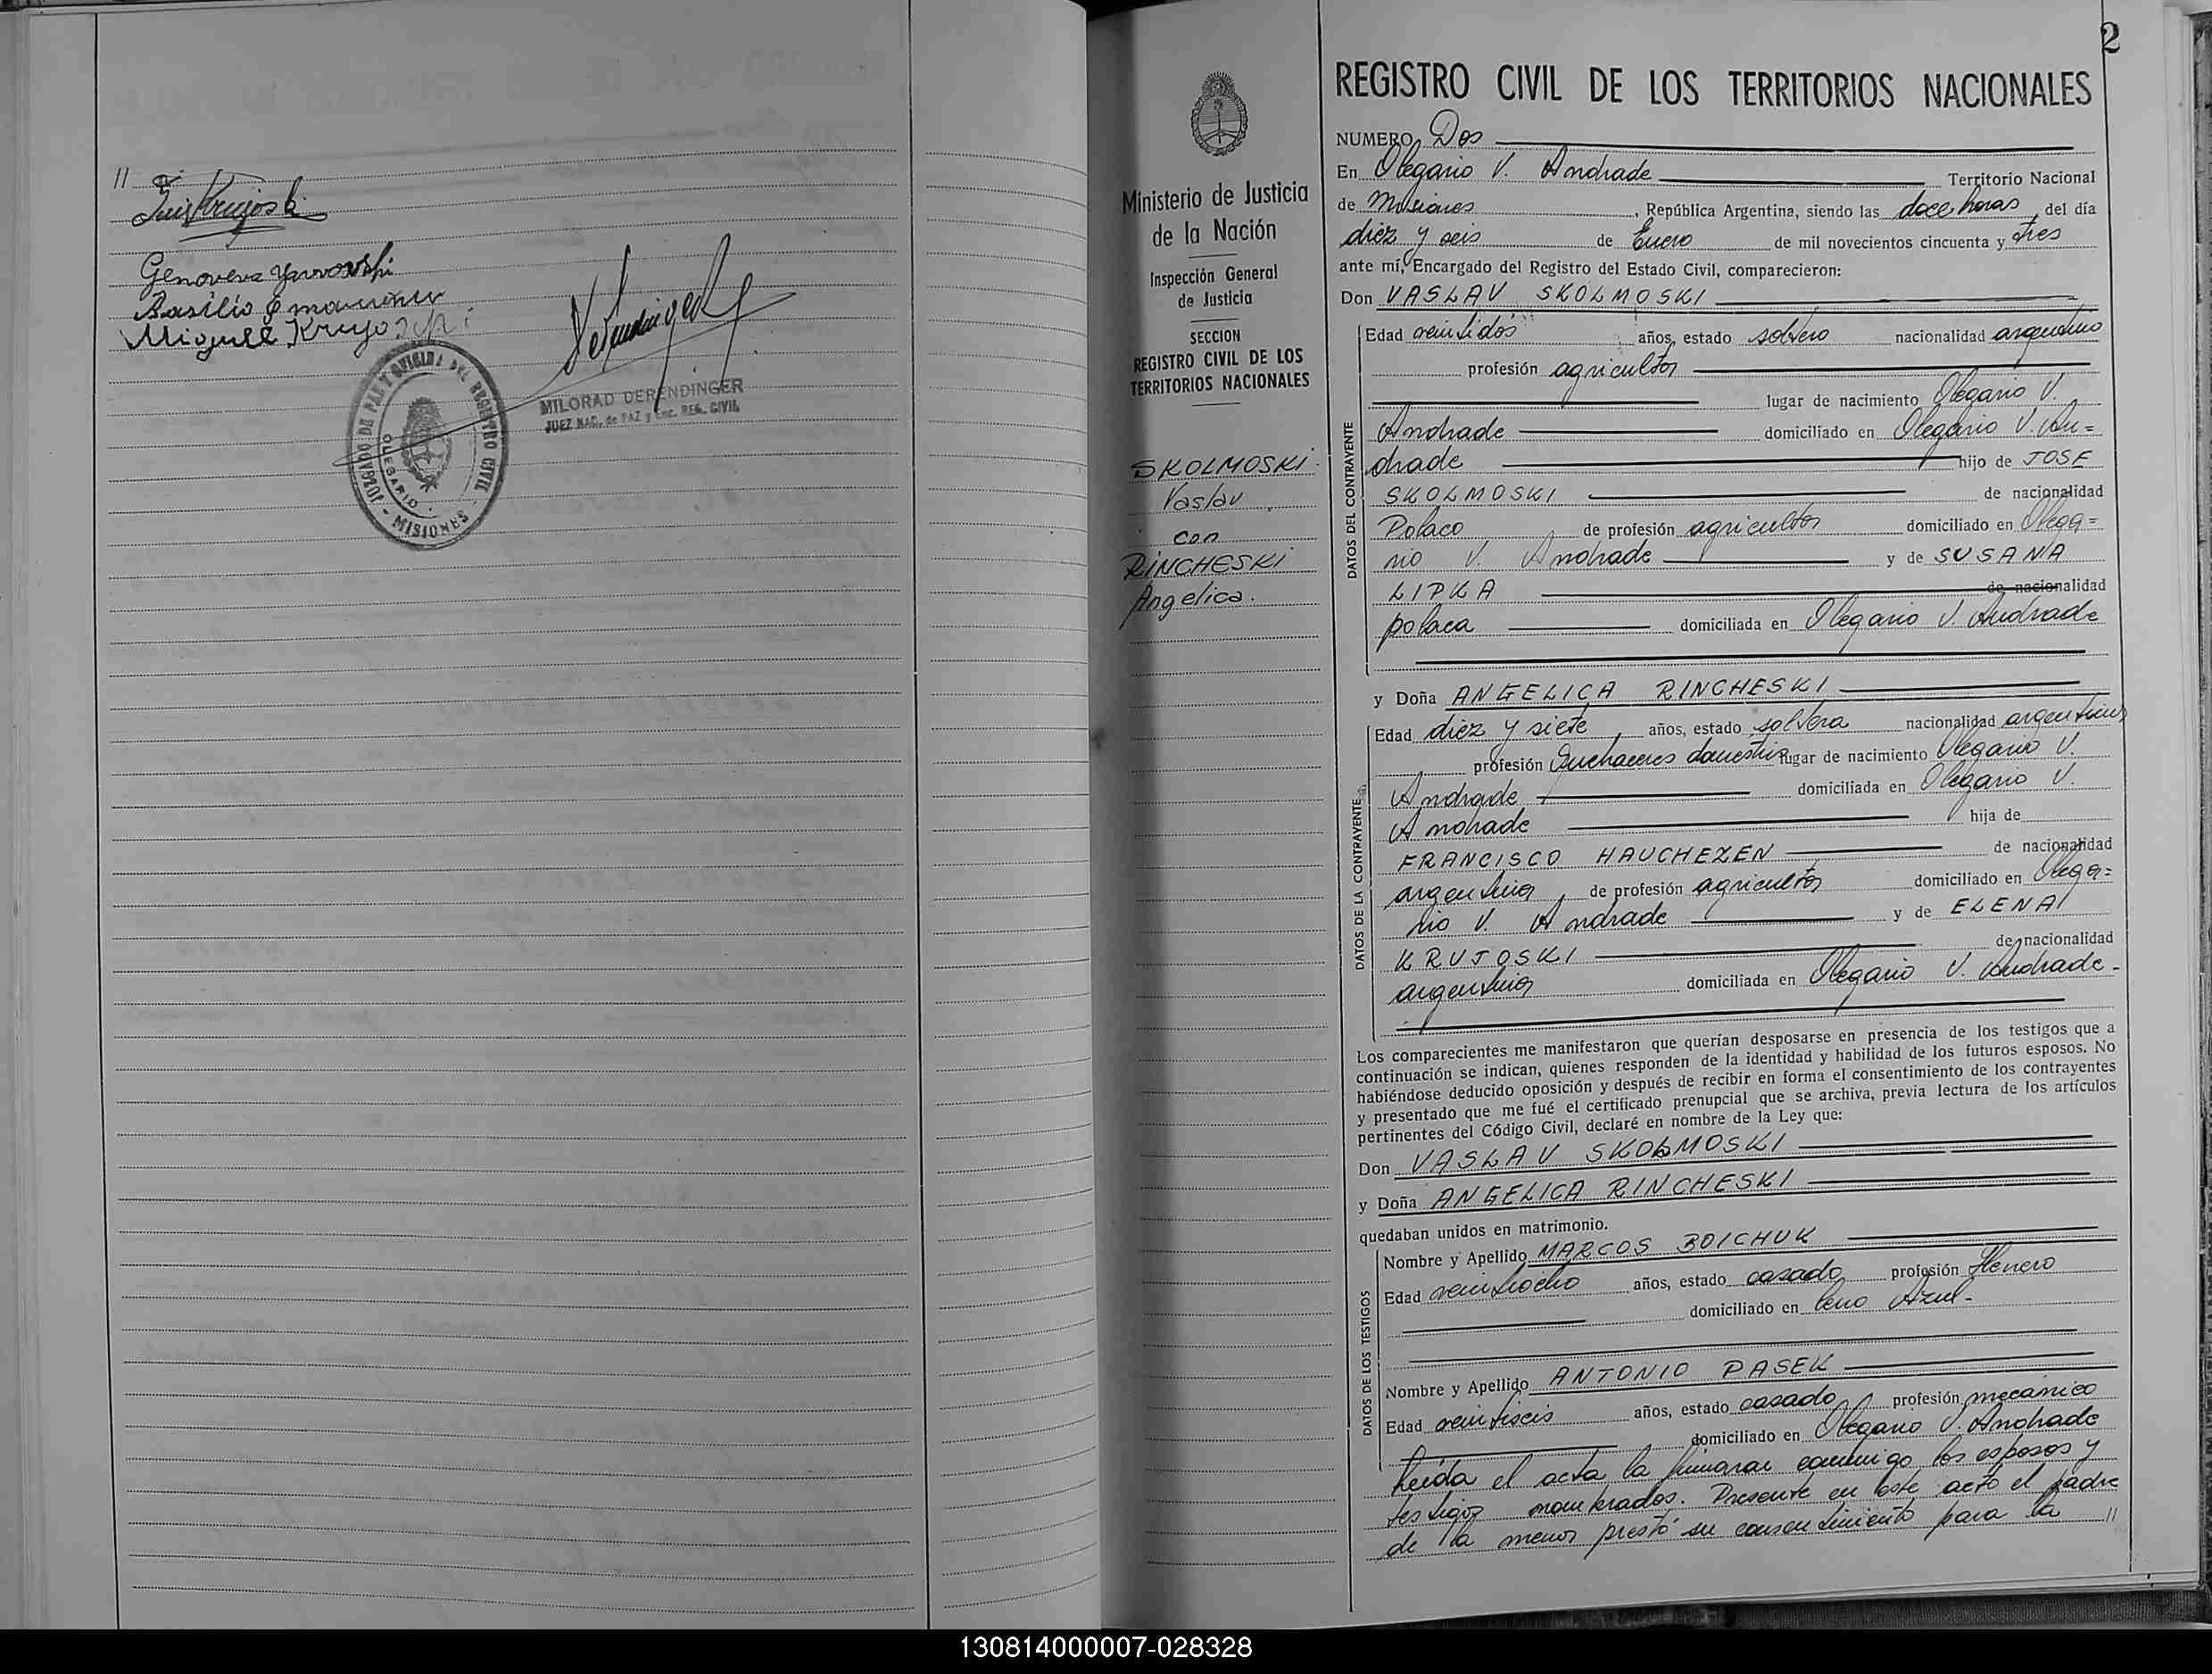 //
Luis Krujoski
Genoveva Yarovski
Basilio
Miguel Krujoski
MILORAD DERENDINGER
JUEZ NAC. de PAZ y Enc. REG. CIVIL
JUZGADO DE PAZ Y OFICINA DEL REGISTRO CIVIL
OLEGARIO
- MISIONES -
2
Ministerio de Justicia
de la Nación
Inspección General
de Justicia
SECCION
REGISTRO CIVIL DE LOS
TERRITORIOS NACIONALES
SKOLMOSKI
Vaslav
con
RINCHESKI
Angelica.
REGISTRO CIVIL DE LOS TERRITORIOS NACIONALES
NUMERO Dos
En Olegario V. Andrade Territorio Nacional
de Misiones, República Argentina, siendo las doce horas del día
diez y seis de Enero de mil novecientos cincuenta y tres
ante mí, Encargado del Registro del Estado Civil, comparecieron:
Don VASLAV SKOLMOSKI
DATOS DEL CONTRAYENTE
Edad veintidos años, estado soltero nacionalidad argentino
profesión agricultor
lugar de nacimiento Olegario V.
Andrade domiciliado en Olegario V. An=
drade hijo de JOSE
SKOLMOSKI de nacionalidad
Polaco de profesión agricultor domiciliado en Olega=
rio V. Andrade y de SUSANA
LIPKA de nacionalidad
polaca domiciliada en Olegario V. Andrade
y Doña ANGELICA RINCHESKI
DATOS DE LA CONTRAYENTE
Edad diez y siete años, estado soltera nacionalidad argentina
profesión Quehaceres domestic lugar de nacimiento Olegario V.
Andrade domiciliada en Olegario V.
Andrade hija de
FRANCISCO HAUCHEZEN de nacionalidad
argentina de profesión agricultor domiciliado en Olega=
rio V. Andrade y de ELENA
KRUJOSKI de nacionalidad
argentina domiciliada en Olegario V. Andrade-
Los comparecientes me manifestaron que querían desposarse en presencia de los testigos que a
continuación se indican, quienes responden de la identidad y habilidad de los futuros esposos. No
habiéndose deducido oposición y después de recibir en forma el consentimiento de los contrayentes
y presentado que me fué el certificado prenupcial que se archiva, previa lectura de los artículos
pertinentes del Código Civil, declaré en nombre de la Ley que:
Don VASLAV SKOLMOSKI
y Doña ANGELICA RINCHESKI
quedaban unidos en matrimonio.
DATOS DE LOS TESTIGOS
Nombre y Apellido MARCOS BOICHUK
Edad veintiocho años, estado casado profesión
domiciliado en Cerro Azul-
Nombre y Apellido ANTONIO PASEK
Edad veintiseis años, estado casado profesión mecanico
domiciliado en Olegario V. Andrade
Leída el acta la firmaran conmigo los esposos y
testigos nombrados. Presente en este acto el padre
de la menor prestó su consentimiento para la //
130814000007-028328